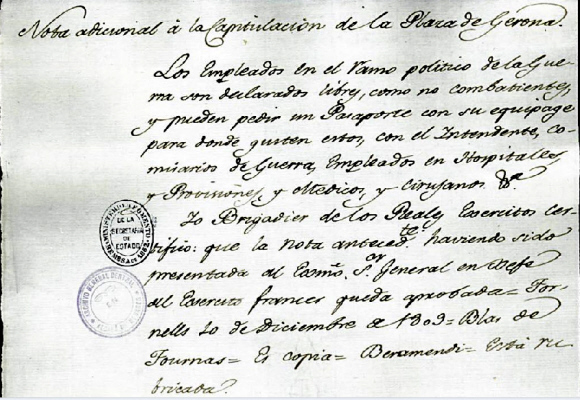 Nota adicional à la Capitulación de la Plaza de Gerona.
Los Empleados en el Ramo politico de la Gue
rra son declarados libres, como no combatientes,
y pueden pedir un Pasaporte con su equipage
para donde gusten estos, con el Intendente, co-
misarios de Guerra, Empleados en Hospitales
y Provisiones, y Medicos, y Cirujanos &a.
Yo Brigadier de los Reales Exercitos cer-
tifico: que la nota antecedte. haviendo sido
presentada al Exmo. Sor. General en Xefe
del Exercito frances queda aprobada = For-
nells 10 de Diciembre de 1809 = Blas de
Fournas = Es copia = Beramendi = Está ru
bricada.
DE LA
SECRETARIA
DE
ESTADO